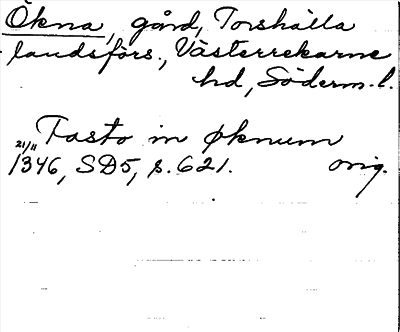 Ökna, gård, Torshälla
landsförs., Västerrekarne
hd, Söderm. l.
Fasto in øknum
21/11 1346, SD5, s. 621. orig.